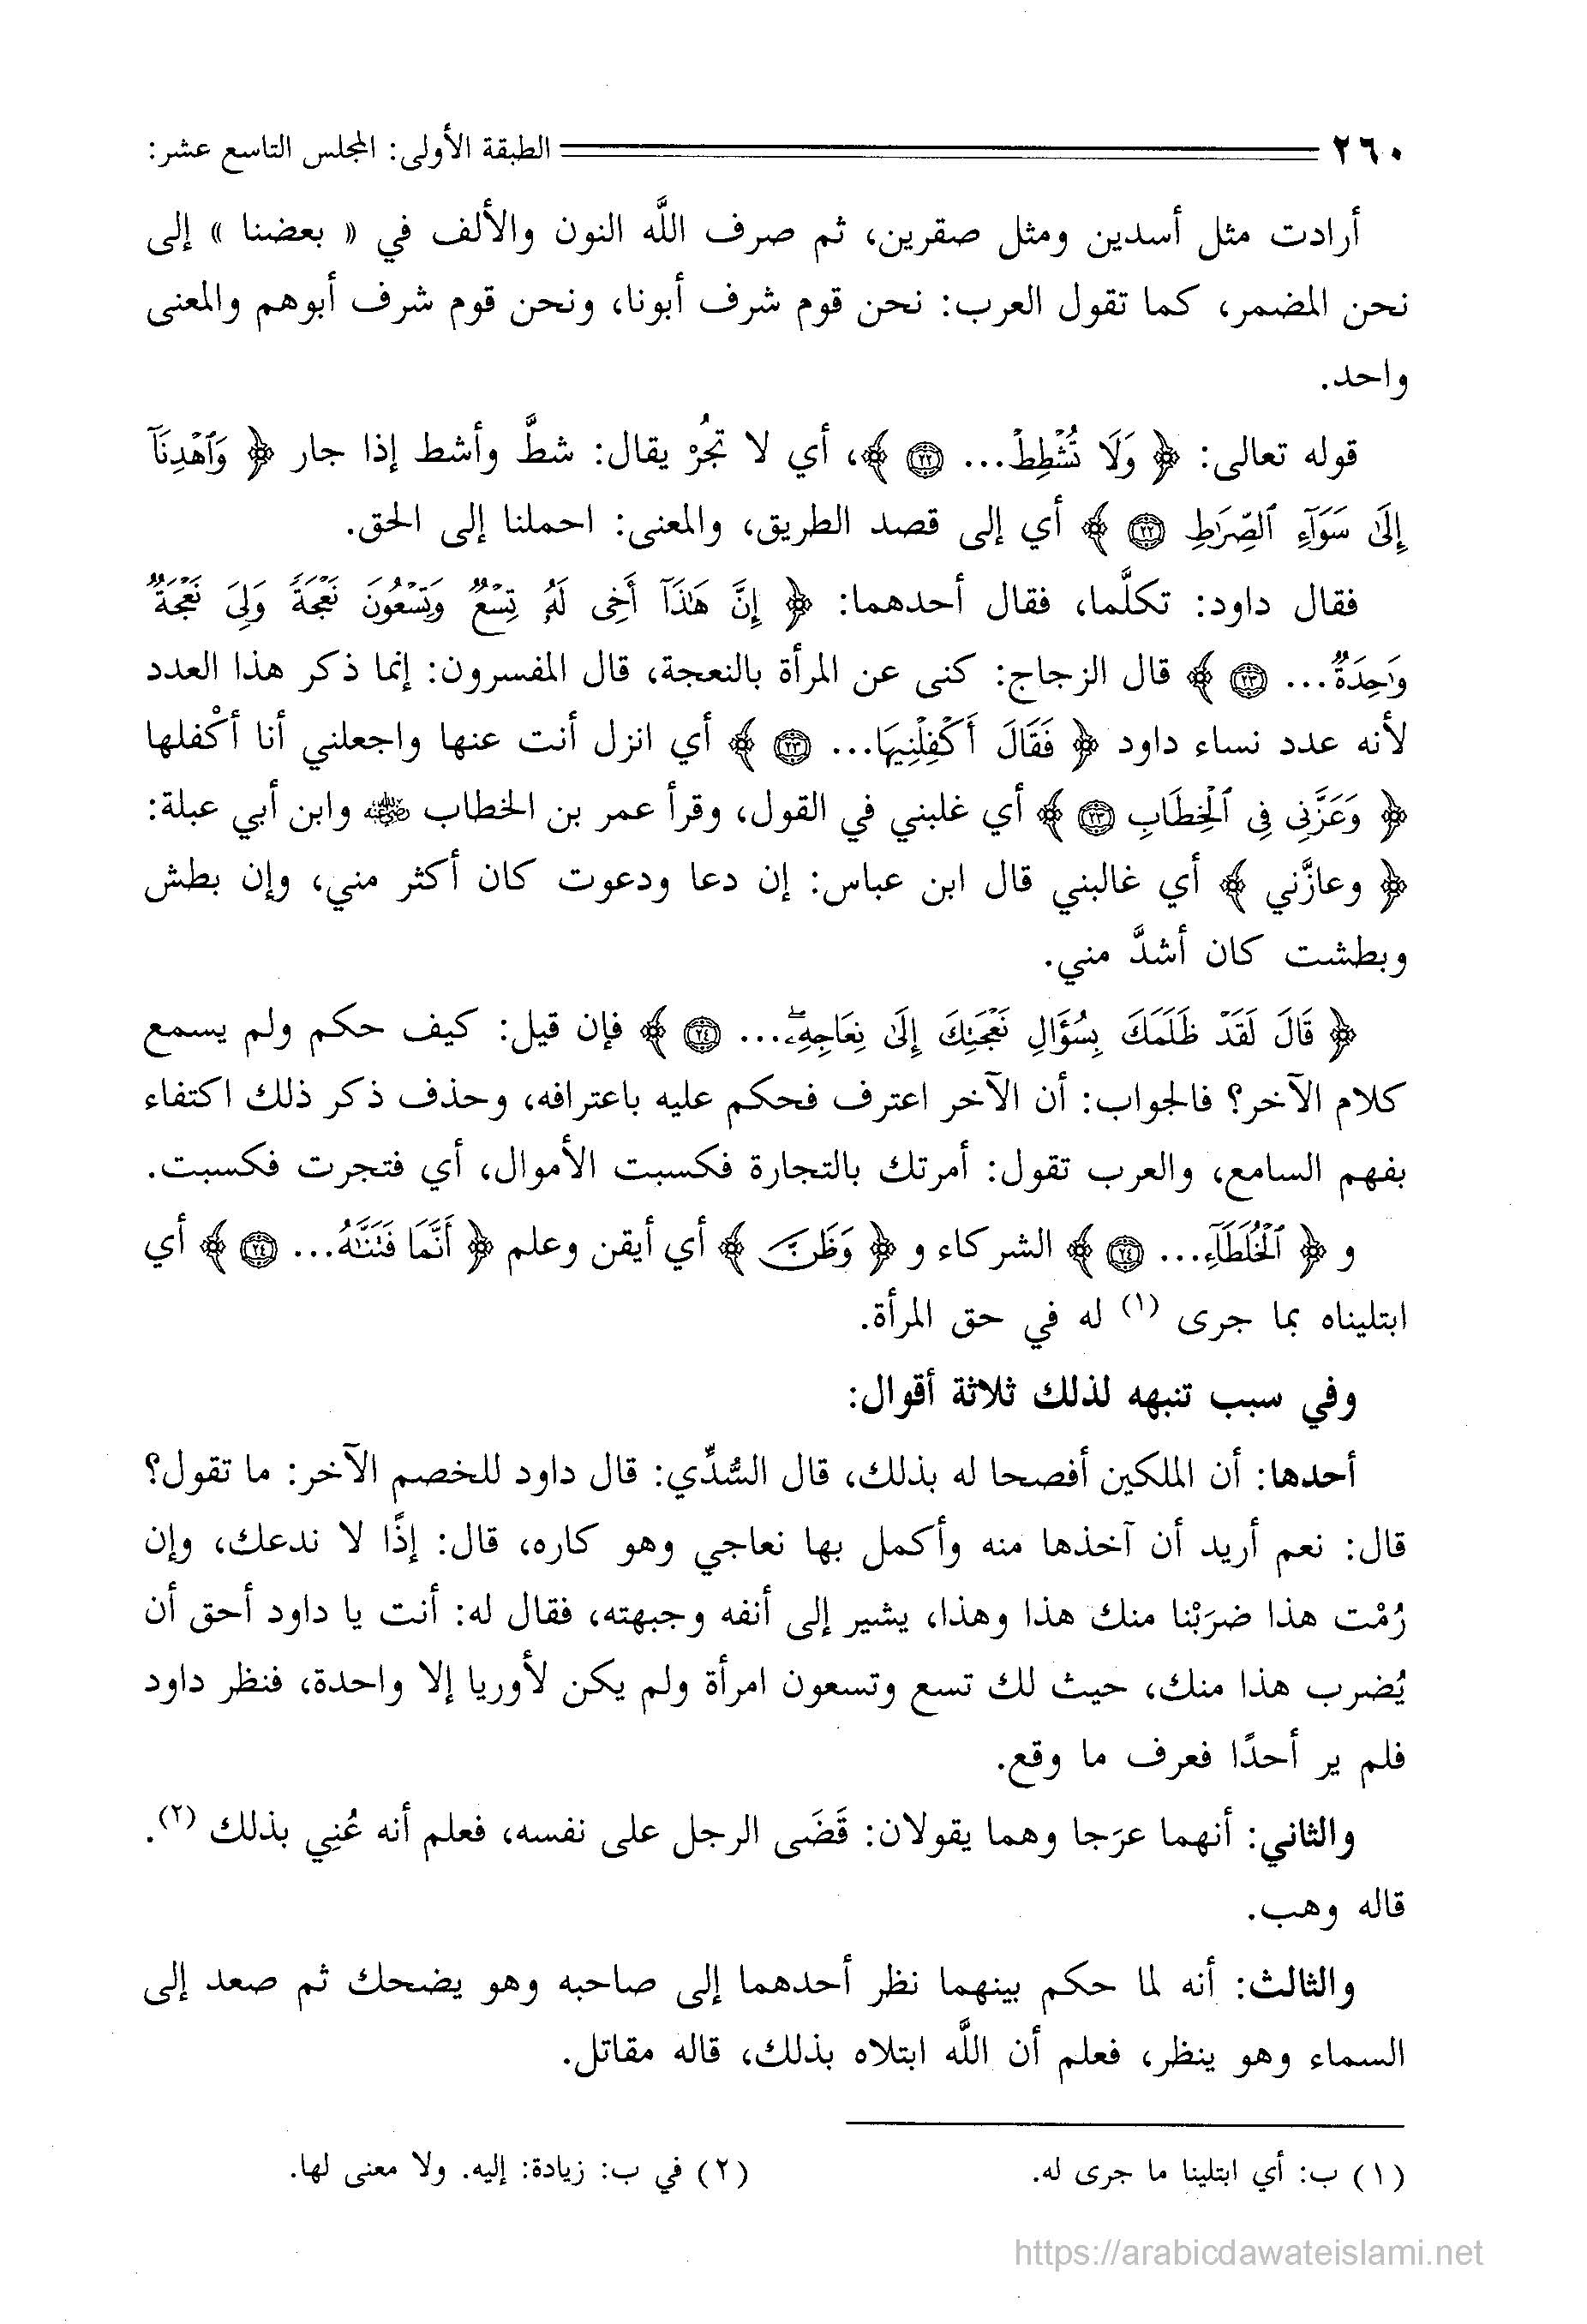 ٢٦٠ الطبقة الأولى: المجلس التاسع عشر:
أرادت مثل أسدين ومثل صقرين، ثم صرف اللَّه النون والألف في « بعضنا » إلى
نحن المضمر، كما تقول العرب: نحن قوم شرف أبونا، ونحن قوم شرف أبوهم والمعنى
واحد.
قوله تعالى: ﴿ وَلَا تُشْطِطْ... ٢٢ ﴾، أي لا تَجُرْ يقال: شطَّ وأشط إذا جار ﴿ وَٱهْدِنَآ
إِلَىٰ سَوَآءِ ٱلصِّرَٰطِ ٢٢ ﴾ أي إلى قصد الطريق، والمعنى: احملنا إلى الحق.
فقال داود: تكلَّما، فقال أحدهما: ﴿ إِنَّ هَٰذَآ أَخِى لَهُۥ تِسْعٌ وَتِسْعُونَ نَعْجَةً وَلِىَ نَعْجَةٌ
وَٰحِدَةٌ... ٢٣ ﴾ قال الزجاج: كنى عن المرأة بالنعجة، قال المفسرون: إنما ذكر هذا العدد
لأنه عدد نساء داود ﴿ فَقَالَ أَكْفِلْنِيهَا... ٢٣ ﴾ أي انزل أنت عنها واجعلني أنا أكْفلها
﴿ وَعَزَّنِى فِى ٱلْخِطَابِ ٢٣ ﴾ أي غلبني في القول، وقرأ عمر بن الخطاب رضي الله عنه وابن أبي عبلة:
﴿ وعازَّني ﴾ أي غالبني قال ابن عباس: إن دعا ودعوت كان أكثر مني، وإن بطش
وبطشت كان أشدَّ مني.
﴿ قَالَ لَقَدْ ظَلَمَكَ بِسُؤَالِ نَعْجَتِكَ إِلَىٰ نِعَاجِهِۦ... ٢٤ ﴾ فإن قيل: كيف حكم ولم يسمع
كلام الآخر؟ فالجواب: أن الآخر اعترف فحكم عليه باعترافه، وحذف ذكر ذلك اكتفاء
بفهم السامع، والعرب تقول: أمرتك بالتجارة فكسبت الأموال، أي فتجرت فكسبت.
و ﴿ ٱلْخُلَطَآءِ... ٢٤ ﴾ الشركاء و ﴿ وَظَنَّ ﴾ أي أيقن وعلم ﴿ أَنَّمَا فَتَنَّٰهُ... ٢٤ ﴾ أي
ابتليناه بما جرى (١) له في حق المرأة.
وفي سبب تنبهه لذلك ثلاثة أقوال:
أحدها: أن الملكين أفصحا له بذلك، قال السُّدِّي: قال داود للخصم الآخر: ما تقول؟
قال: نعم أريد أن آخذها منه وأكمل بها نعاجي وهو كاره، قال: إذًا لا ندعك، وإن
رُمْت هذا ضرَبْنا منك هذا وهذا، يشير إلى أنفه وجبهته، فقال له: أنت يا داود أحق أن
يُضرب هذا منك، حيث لك تسع وتسعون امرأة ولم يكن لأوريا إلا واحدة، فنظر داود
فلم ير أحدًا فعرف ما وقع.
والثاني: أنهما عرَجا وهما يقولان: قَضَى الرجل على نفسه، فعلم أنه عُنِي بذلك (٢).
قاله وهب.
والثالث: أنه لما حكم بينهما نظر أحدهما إلى صاحبه وهو يضحك ثم صعد إلى
السماء وهو ينظر، فعلم أن اللَّه ابتلاه بذلك، قاله مقاتل.
(١) ب: أي ابتلينا ما جرى له. (٢) في ب: زيادة: إليه. ولا معنى لها.
https://arabicdawateislami.net